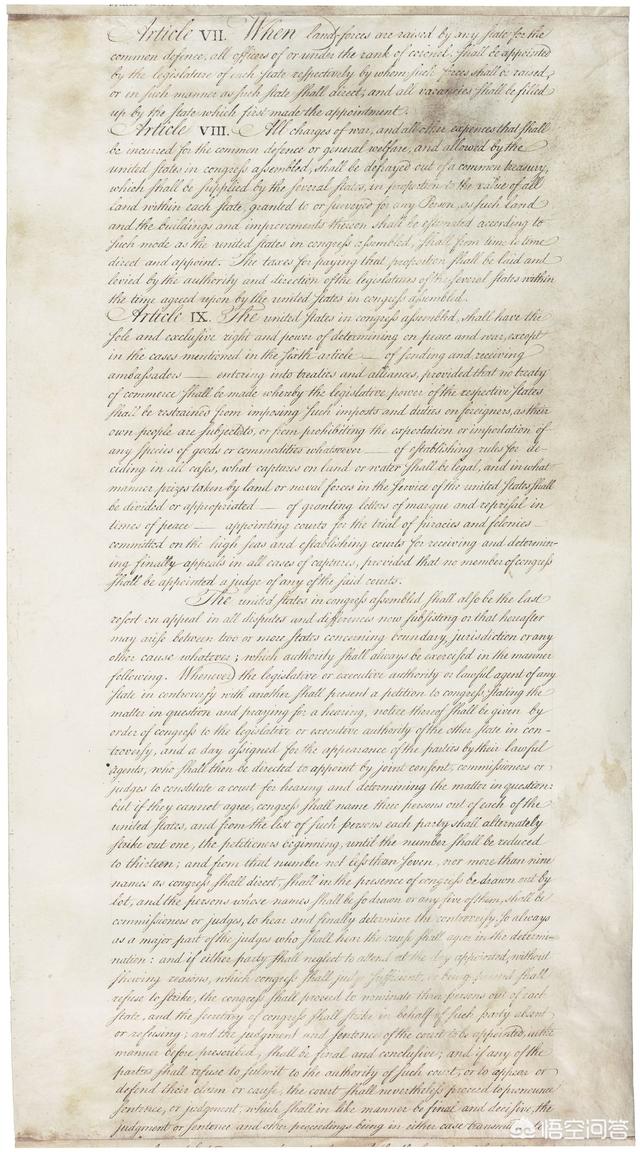 Article VII. When land-forces are raised by any state for the
common defence, all officers of or under the rank of colonel, shall be appointed
by the legislature of each state respectively by whom such forces shall be raised,
or in such manner as such state shall direct, and all vacancies shall be filled
up by the state which first made the appointment.
Article VIII. All charges of war, and all other expences that shall
be incurred for the common defence or general welfare, and allowed by the
united states in congress assembled, shall be defrayed out of a common treasury,
which shall be supplied by the several states, in proportion to the value of all
land within each state, granted to or surveyed for any Person, as such land
and the buildings and improvements thereon shall be estimated according to
such mode as the united states in congress assembled, shall from time to time
direct and appoint. The taxes for paying that proportion shall be laid and
levied by the authority and direction of the legislatures of the several states within
the time agreed upon by the united states in congress assembled.
Article IX. The united states in congress assembled, shall have the
sole and exclusive right and power of determining on peace and war, except
in the cases mentioned in the sixth article — of sending and receiving
ambassadors — entering into treaties and alliances, provided that no treaty
of commerce shall be made whereby the legislative power of the respective states
shall be restrained from imposing such imposts and duties on foreigners, as their
own people are subjected to, or from prohibiting the exportation or importation of
any species of goods or commodities whatsoever — of establishing rules for de-
ciding in all cases, what captures on land or water shall be legal, and in what
manner prizes taken by land or naval forces in the service of the united states shall
be divided or appropriated — of granting letters of marque and reprisal in
times of peace — appointing courts for the trial of piracies and felonies
committed on the high seas and establishing courts for receiving and determin-
ing finally appeals in all cases of captures, provided that no member of congress
shall be appointed a judge of any of the said courts.
The united states in congress assembled shall also be the last
resort on appeal in all disputes and differences now subsisting or that hereafter
may arise between two or more states concerning boundary, jurisdiction or any
other cause whatever; which authority shall always be exercised in the manner
following. Whenever the legislative or executive authority or lawful agent of any
state in controversy with another shall present a petition to congress, stating the
matter in question and praying for a hearing, notice thereof shall be given by
order of congress to the legislative or executive authority of the other state in con-
troversy, and a day assigned for the appearance of the parties by their lawful
agents, who shall then be directed to appoint by joint consent, commissioners or
judges to constitute a court for hearing and determining the matter in question:
but if they cannot agree, congress shall name three persons out of each of the
united states, and from the list of such persons each party shall alternately
strike out one, the petitioners beginning, until the number shall be reduced
to thirteen; and from that number not less than seven, nor more than nine
names as congress shall direct, shall in the presence of congress be drawn out by
lot, and the persons whose names shall be so drawn or any five of them, shall be
commissioners or judges, to hear and finally determine the controversy, so always
as a major part of the judges who shall hear the cause shall agree in the determi-
nation: and if either party shall neglect to attend at the day appointed, without
shewing reasons, which congress shall judge sufficient, or being present shall
refuse to strike, the congress shall proceed to nominate three persons out of each
state, and the secretary of congress shall strike in behalf of such party absent
or refusing; and the judgment and sentence of the court to be appointed, in the
manner before prescribed, shall be final and conclusive; and if any of the
parties shall refuse to submit to the authority of such court, or to appear or
defend their claim or cause, the court shall nevertheless proceed to pronounce
sentence, or judgment, which shall in like manner be final and decisive, the
judgment or sentence and other proceedings being in either case transmitted
悟空问答